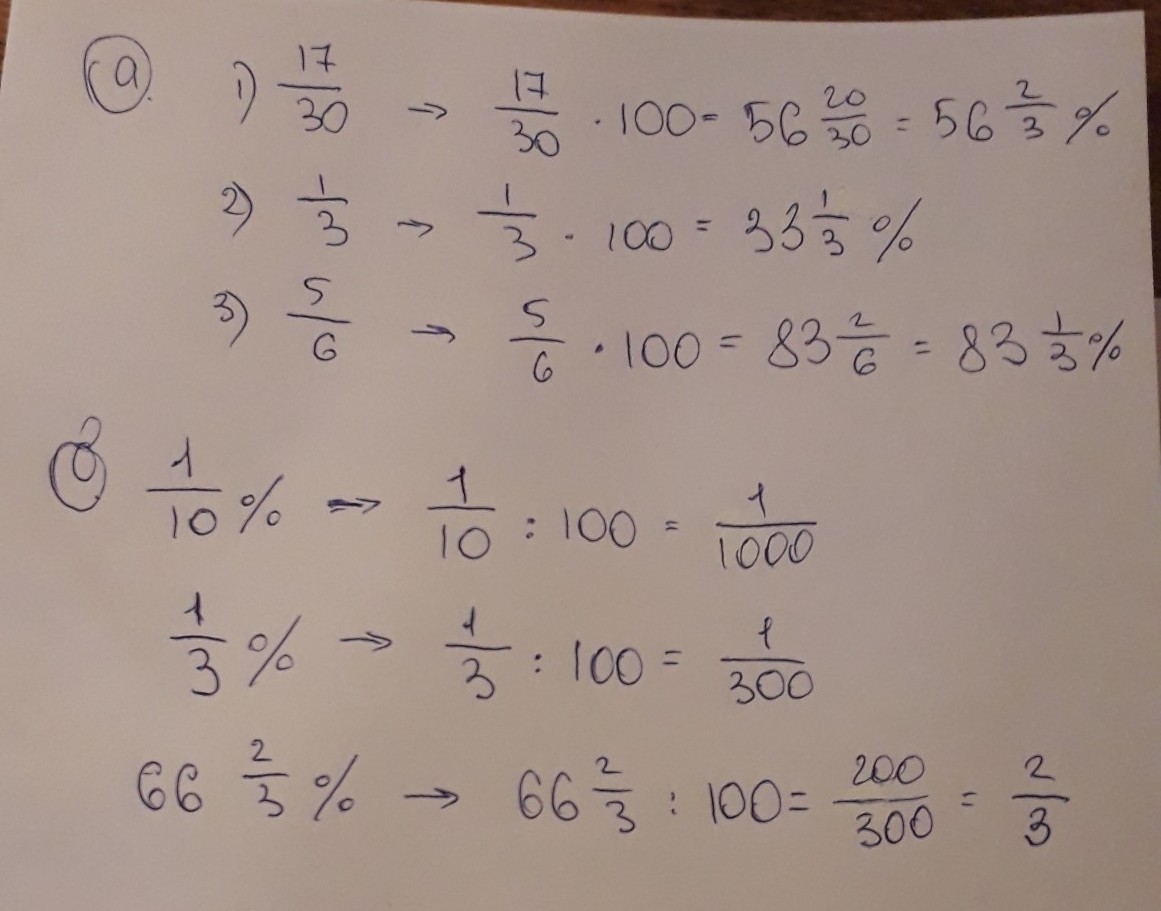 а. 1) 17/30 → 17/30 · 100 = 56 20/30 = 56 2/3 %
2) 1/3 → 1/3 · 100 = 33 1/3 %
3) 5/6 → 5/6 · 100 = 83 2/6 = 83 1/3 %
б 1/10 % → 1/10 : 100 = 1/1000
1/3 % → 1/3 : 100 = 1/300
66 2/3 % → 66 2/3 : 100 = 200/300 = 2/3